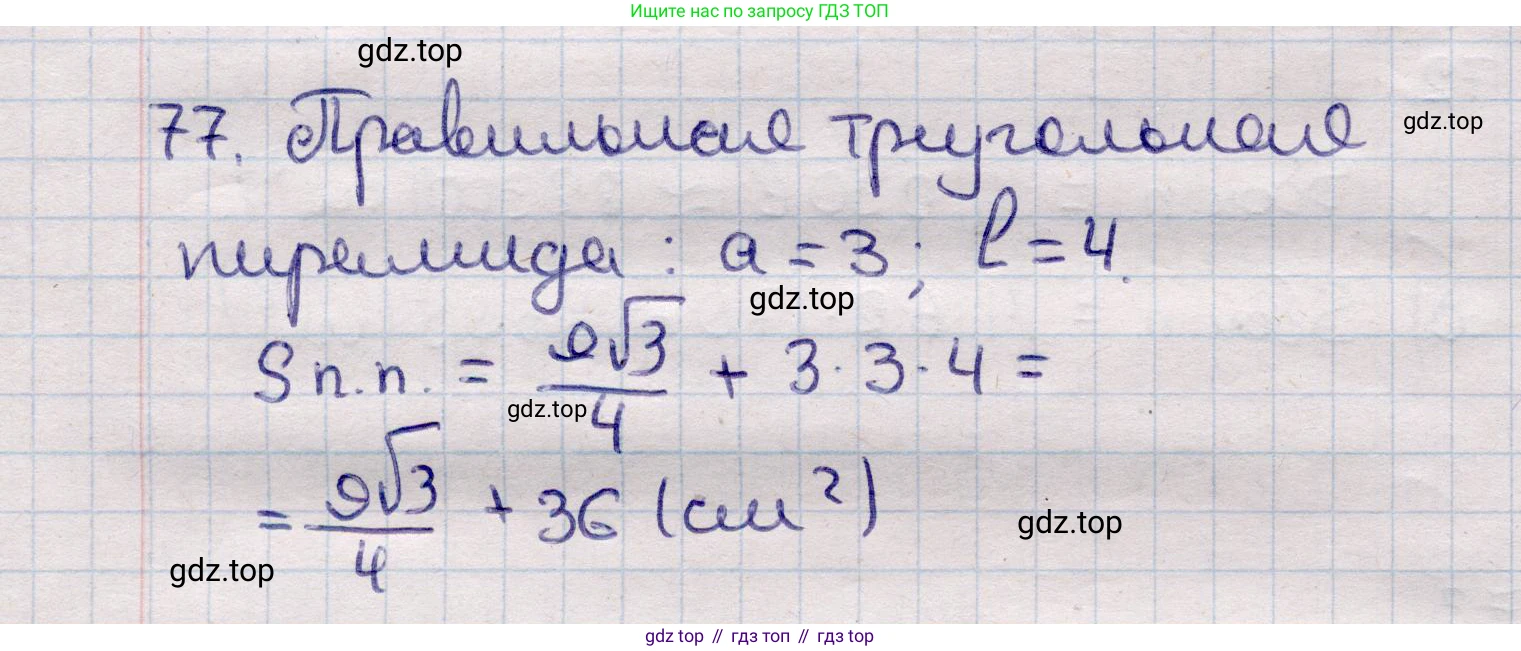 Ищите нас по запросу ГДЗ ТОП
gdz.top
77. Правильная треугольная
gdz.top
пирамида: a = 3; l = 4.
gdz.top
Sп.п. = 9√3/4 + 3·3·4 =
gdz.top
= 9√3/4 + 36 (см²)
gdz.top
gdz.top
gdz top // гдз топ // гдз top